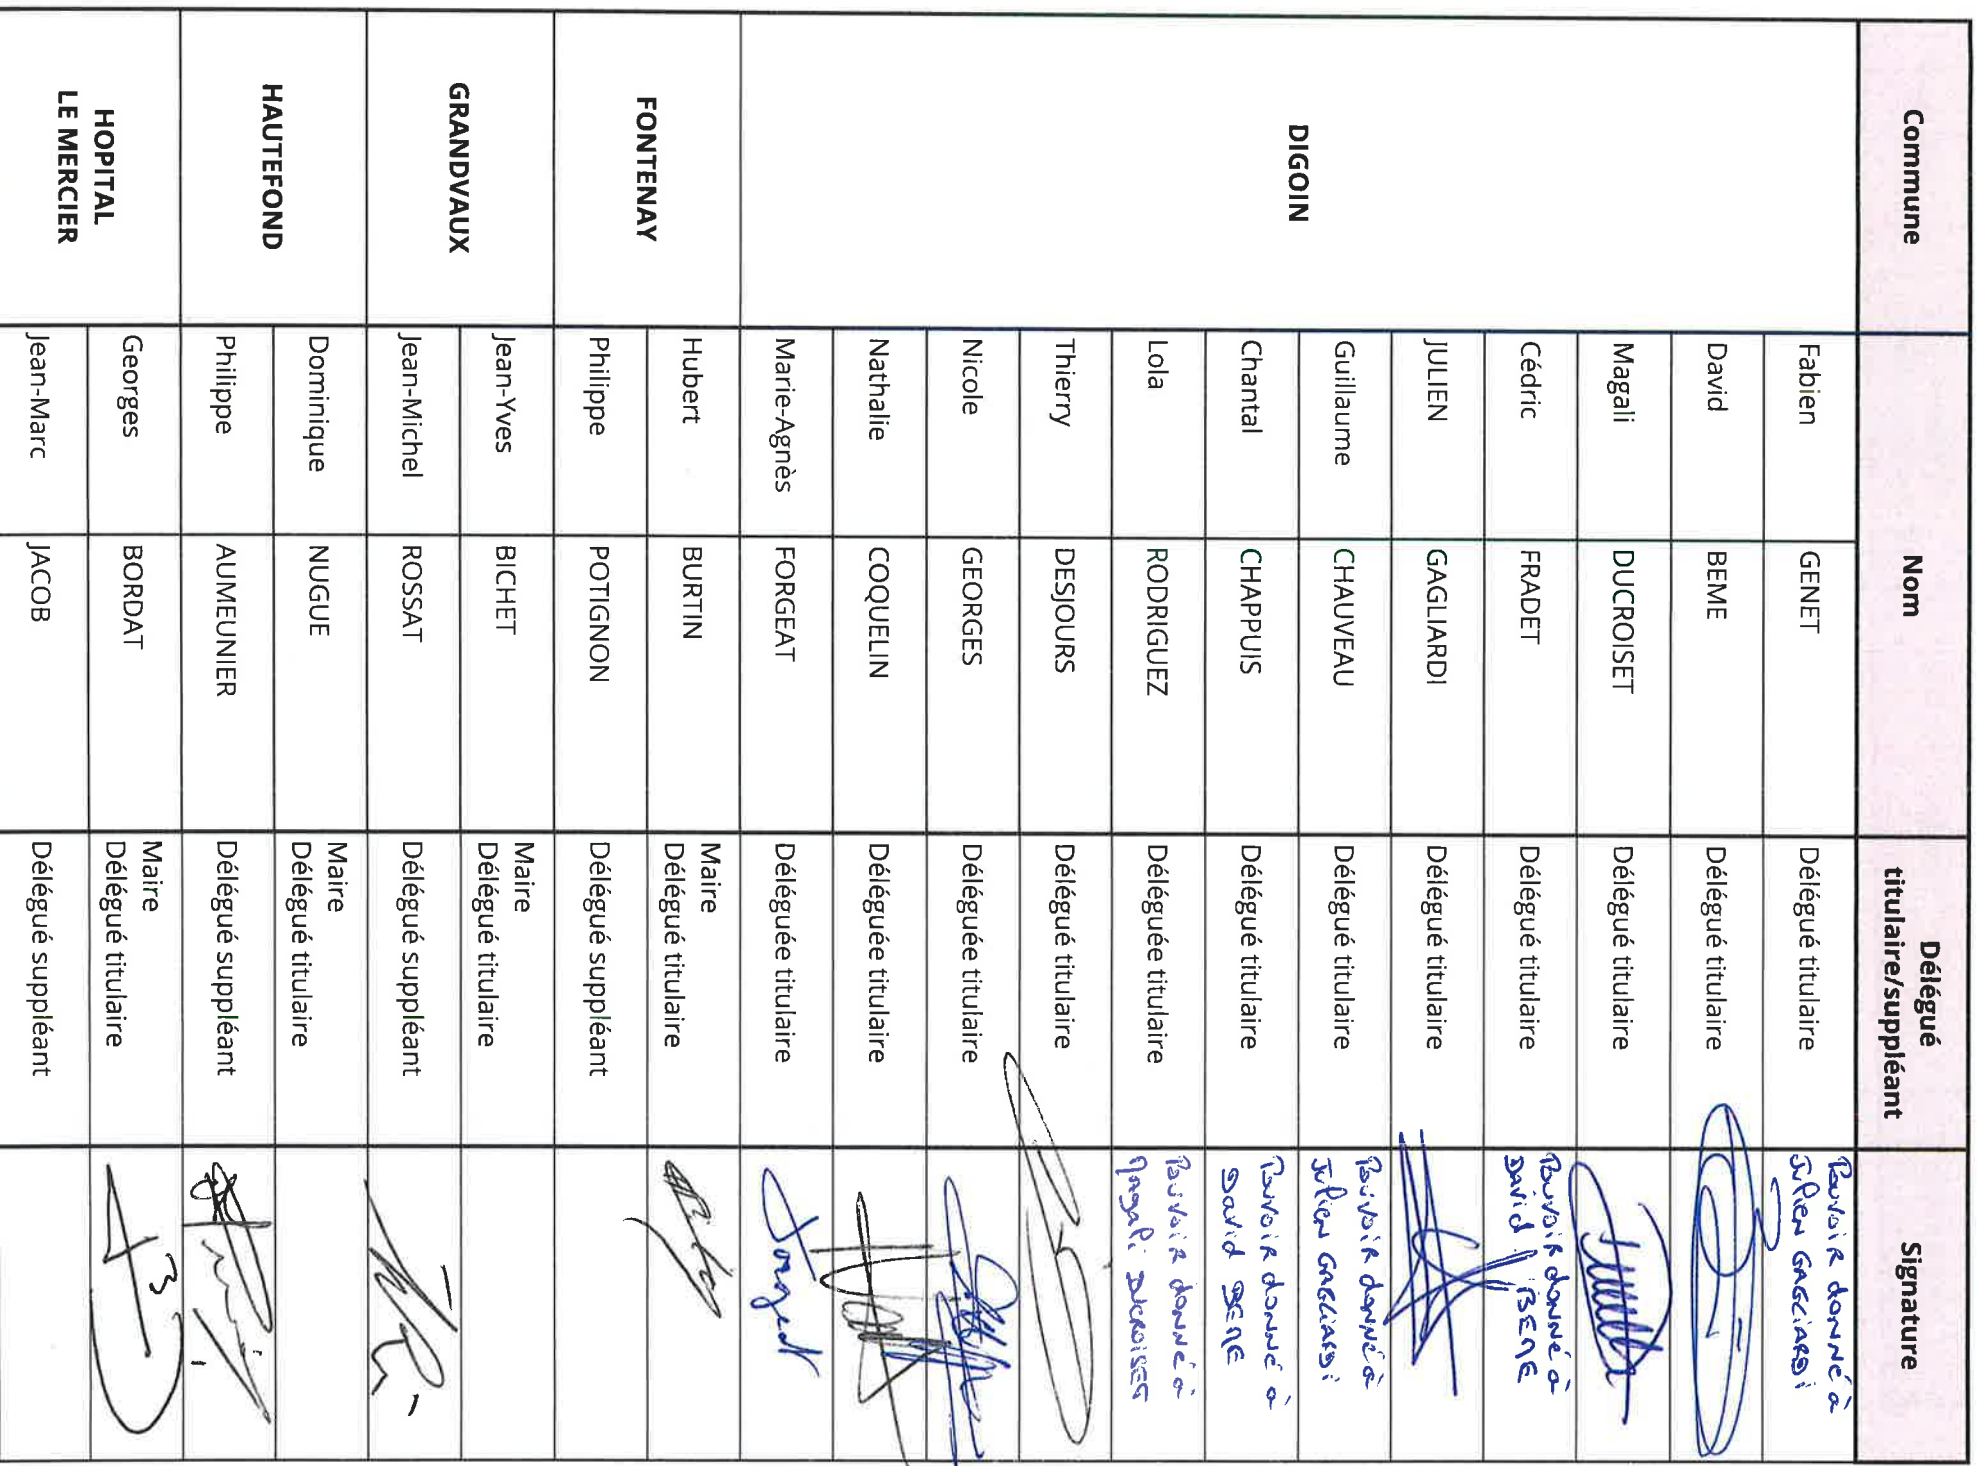 Commune
Nom
Délégué
titulaire/suppléant
Signature
DIGOIN
Fabien
GENET
Délégué titulaire
Pouvoir donné à
Julien GAGLIARDI
David
BEME
Délégué titulaire
Magali
DUCROISET
Délégué titulaire
Cédric
FRADET
Délégué titulaire
Pouvoir donné à
David BEME
JULIEN
GAGLIARDI
Délégué titulaire
Guillaume
CHAUVEAU
Délégué titulaire
Pouvoir donné à
Julien GAGLIARDI
Chantal
CHAPPUIS
Délégué titulaire
Pouvoir donné à
David BEME
Lola
RODRIGUEZ
Déléguée titulaire
Pouvoir donné à
Magali DUCROISET
Thierry
DESJOURS
Délégué titulaire
Nicole
GEORGES
Déléguée titulaire
Nathalie
COQUELIN
Déléguée titulaire
Marie-Agnès
FORGEAT
Déléguée titulaire
Forgeat
FONTENAY
Hubert
BURTIN
Maire
Délégué titulaire
Philippe
POTIGNON
Délégué suppléant
GRANDVAUX
Jean-Yves
BICHET
Maire
Délégué titulaire
Jean-Michel
ROSSAT
Délégué suppléant
HAUTEFOND
Dominique
NUGUE
Maire
Délégué titulaire
Philippe
AUMEUNIER
Délégué suppléant
HOPITAL
LE MERCIER
Georges
BORDAT
Maire
Délégué titulaire
Jean-Marc
JACOB
Délégué suppléant